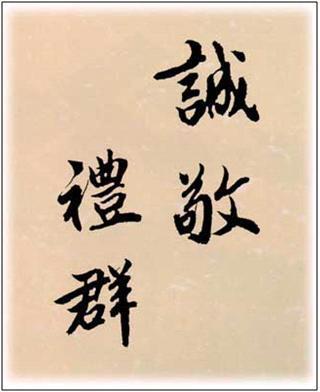 誠敬
禮群